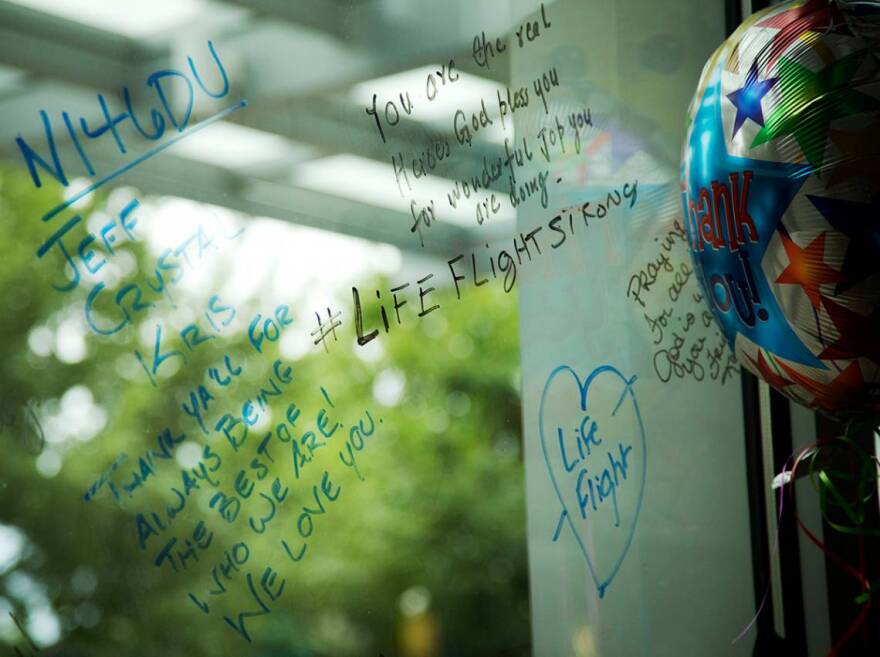 N146DU
JEFF
CRYSTAL
KRIS
THANK YA'LL FOR
ALWAYS BEING
THE BEST OF
WHO WE ARE!
WE LOVE YOU.
You are the real
Heroes God pless you
for wonderful Jop you
are doing.
#LiFEFLightSTRONG
Praying
for all
God is
you
Life
Flight
Thank
You!